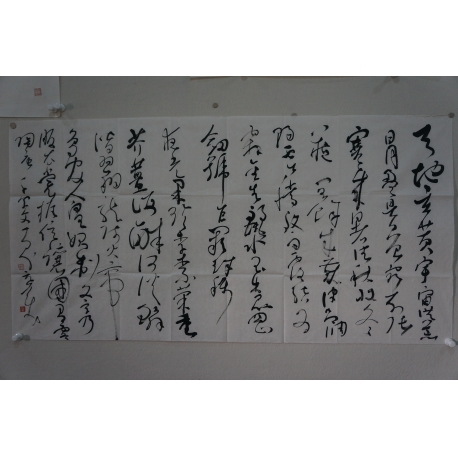 天地玄黄宇宙洪荒
日月盈昃辰宿列张
寒来暑往秋收冬
藏闰余成岁律吕调
阳云腾致雨露结为
霜金生丽水玉出昆冈
剑号巨阙珠称
夜光果珍李柰菜重
芥姜海咸河淡鳞
潜羽翔龙师火帝
鸟官人皇始制文字乃
服衣裳推位让国有虞
陶唐